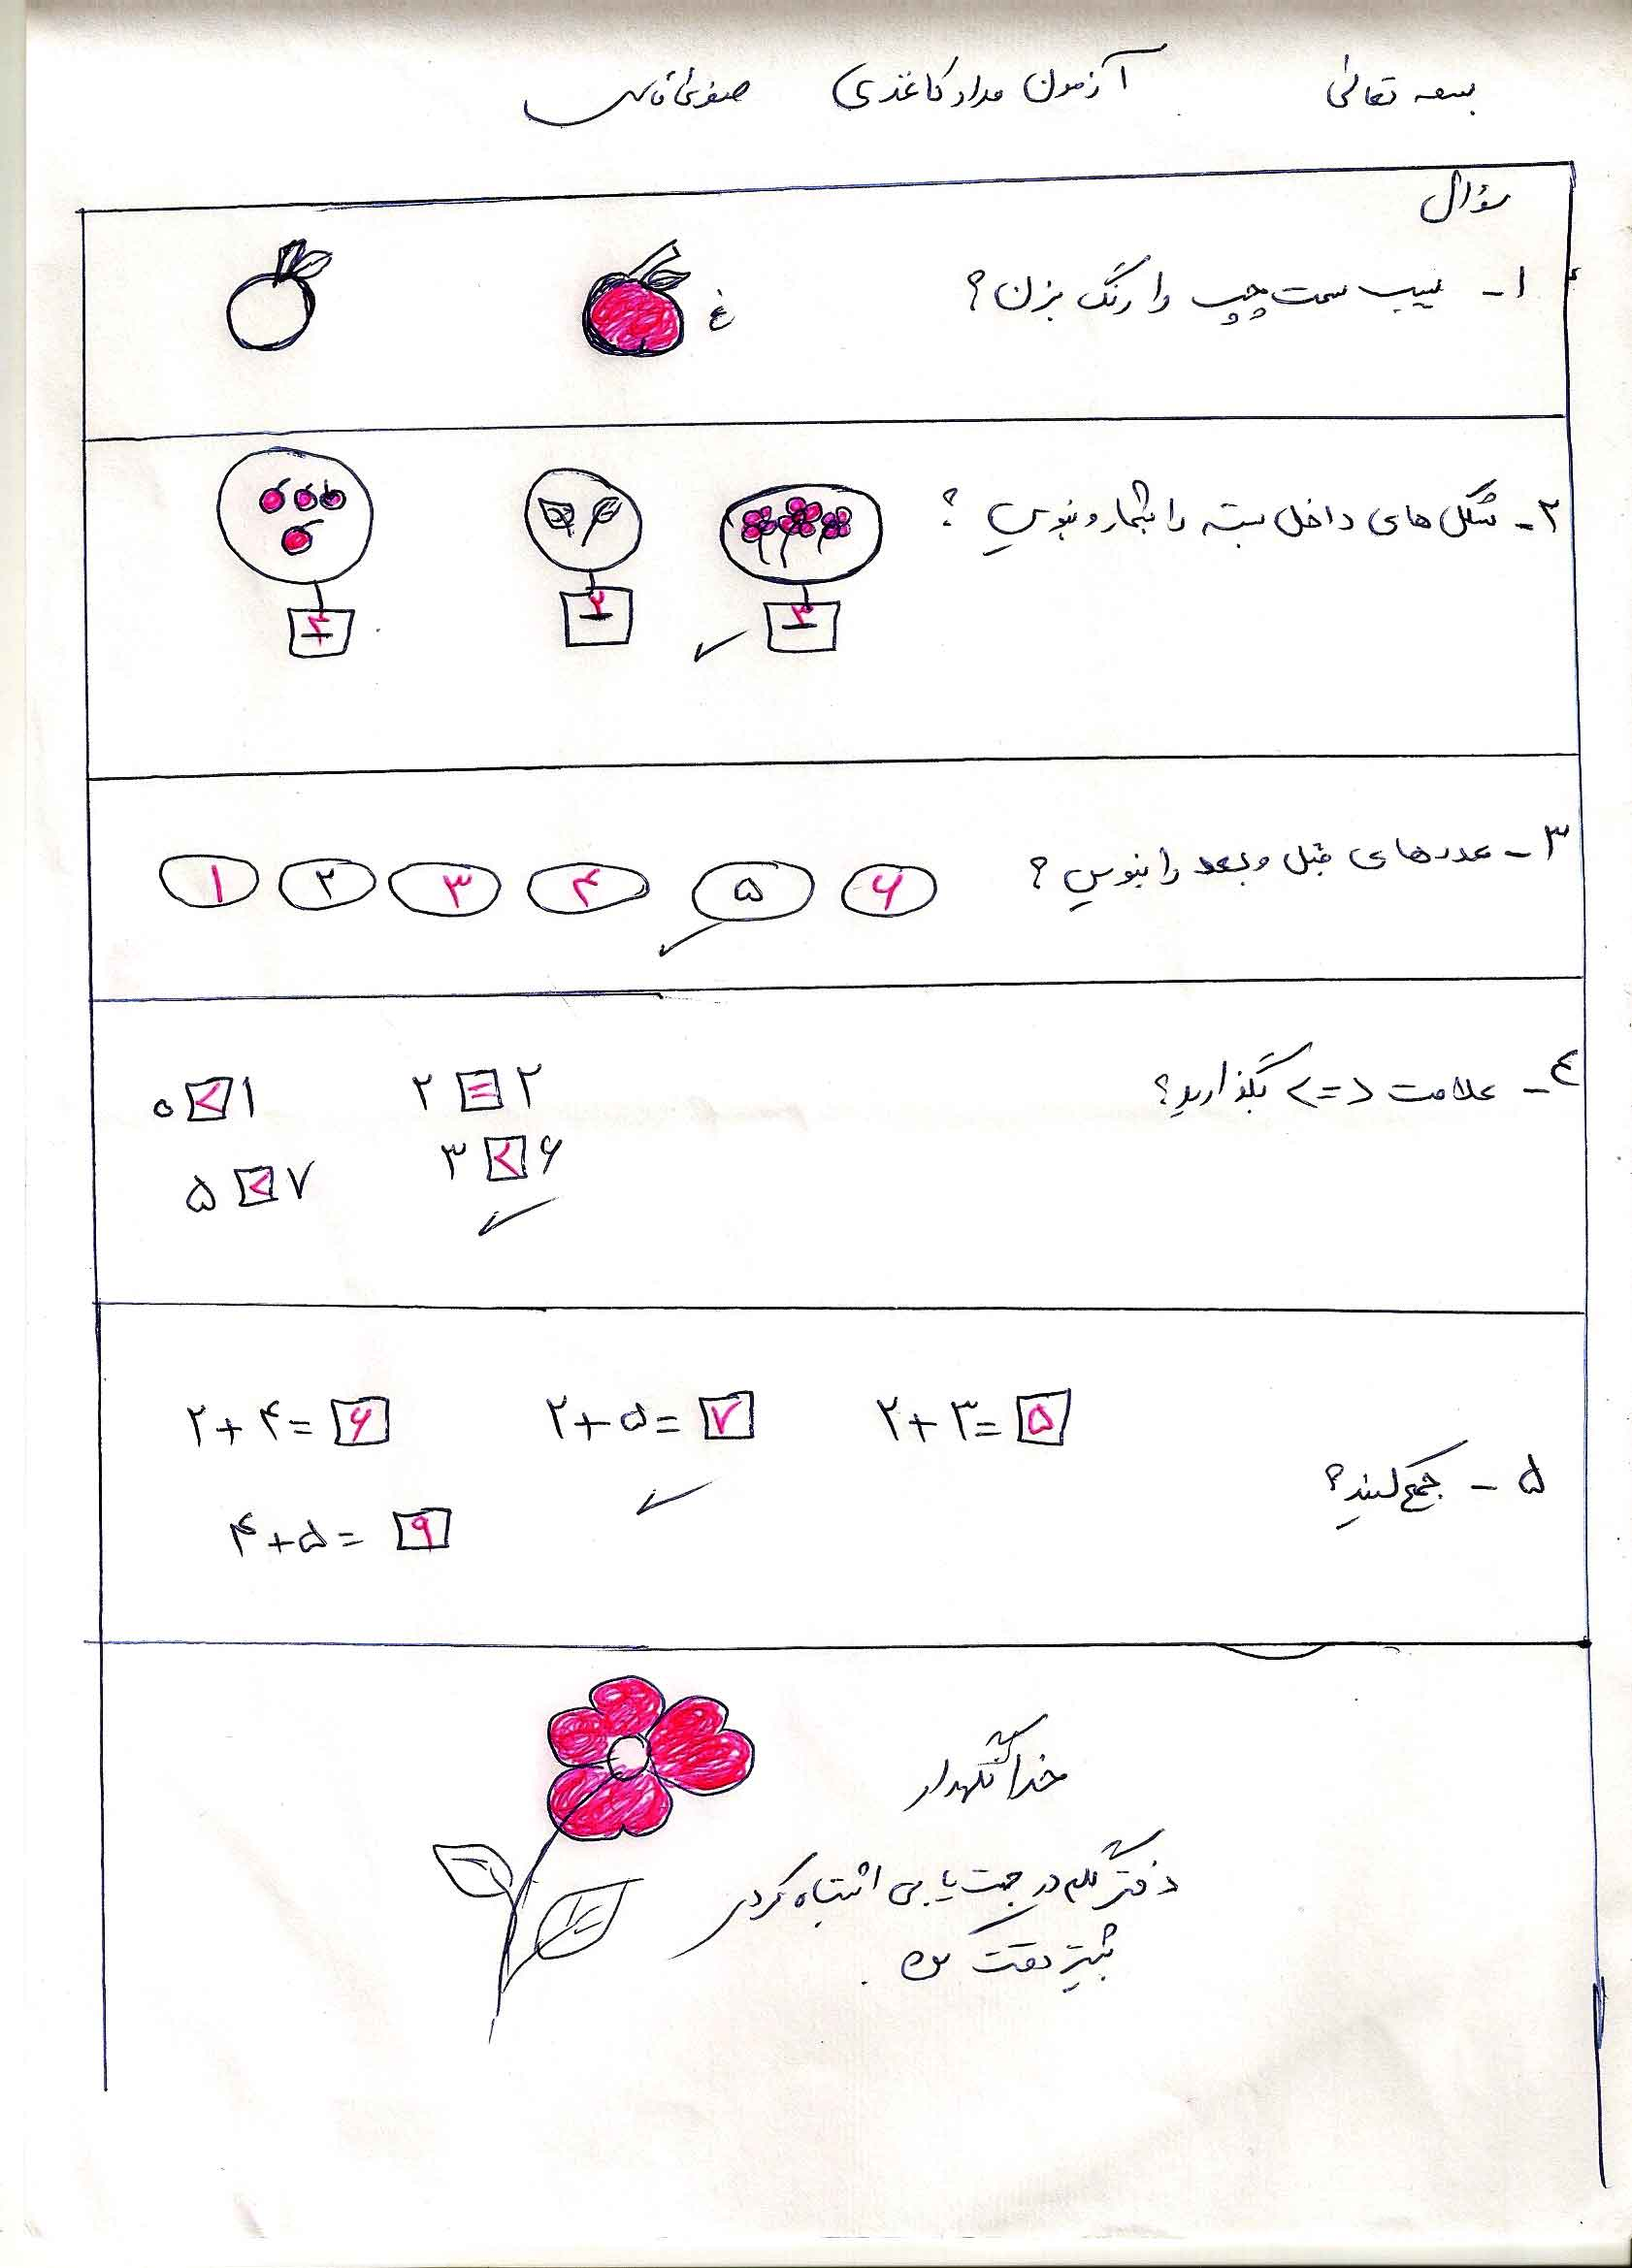 بسمه تعالی آزمون مداد کاغذی
سؤال
۱- سیب سمت چپ را رنگ بزن؟
غ
۲- شکل های داخل بسته را بشمار و بنویس؟
۴ ۲ ۳
۳- عددهای قبل و بعد را بنویس؟
۱ ۲ ۳ ۴ ۵ ۶
٤- علامت <=> بگذارید؟
۰ < ۱ ۲ = ۲
۵ < ۷ ۳ < ۶
۲+۴=۶ ۲+۵=۷ ۲+۳=۵
۵- جمع کنید؟
۴+۵=۹
خدانگهدار
دختر گلم در جهت یابی اشتباه کردی
بیشتر دقت کن.